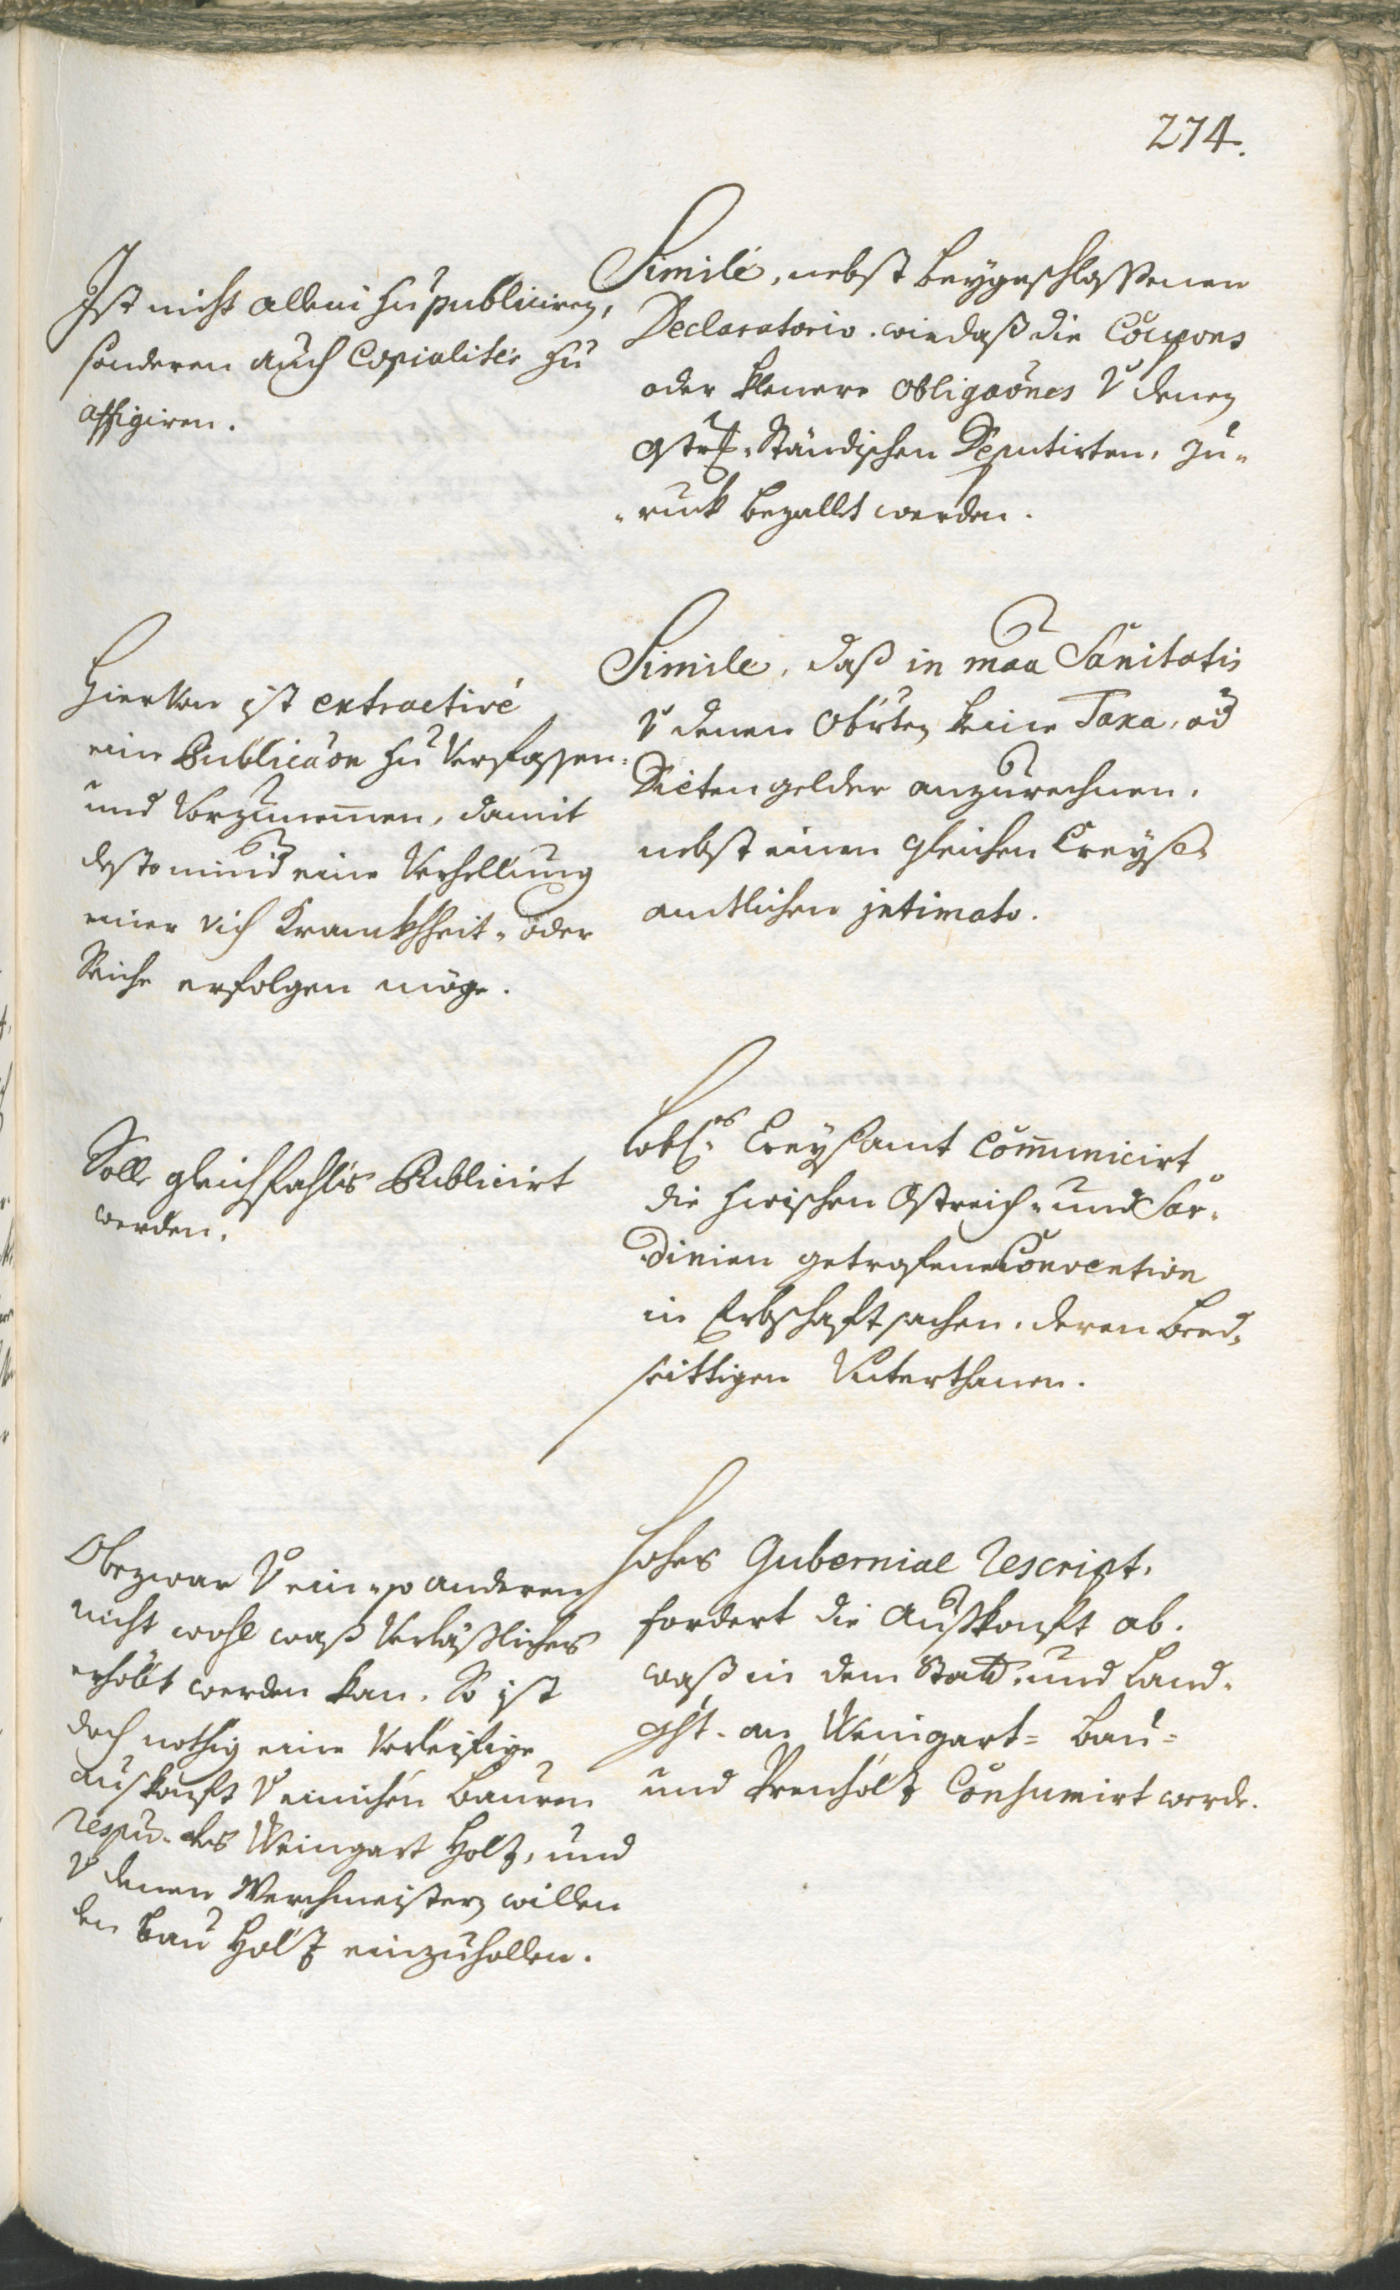 274.
Ist nicht allein zu publiciren,
sonderen auch Copialiter zu
affigiren.
Simile, nebst beygeschlossenen
Declaratorio. wie daß die Coupons
oder klenere obligaōnes v denen
Ständischen Deputirten, zu-
-ruck bezallt werden.
Hiervon ist extractive
eine Publicaōn zu verfassen
und vorzunem̄en, damit
desto mind eine Verhellung
einer vich Kranckheit- oder
Seiche erfolgen möge.
Simile, daß in maa Sanitatis
v denen keine Taxa, od
Dieten gelder anzurechnen.
nebst einen gleichen Creyß-
amtlichen jntimato.
Soll gleichfahls Publicirt
werden.
Löbl: Creysamt com̄unicirt
die zwischen Östreich- und Sar-
dinien getrofene Convention
in Erbschaftsachen. deren beed-
seittigen Unterthanen.
Obezwar v ein- anderen
nicht wohl waß Verläßliches
erholt werden kan. So ist
doch nothig eine Verleifige
auskonft v einichen bauren
respu. des Weingart Holtz, und
v denen Werchmeistern willen
den bau Holtz einzuhollen.
Hohes Gubernial Rescript.
fordert die Außkonft ab.
waß in dem Statt- und Land-
ght. an Weingart- bau-
und Prenholtz Consumirt werde.